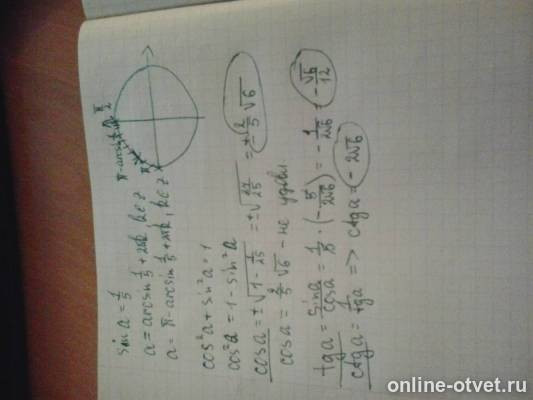 sin a = 1/5
a = arcsin 1/5 + 2πk, k ∈ z
a = π - arcsin 1/5 + 2πk, k ∈ z
π/2
π - arcsin 1/5
π
cos²a + sin²a = 1
cos²a = 1 - sin²a
cosa = ±√(1 - 1/25) = ±√(24/25) = ± 2/5 √6
cosa = 2/5 √6 - не удовл.
tga = sina/cosa = 1/5 · (- 5/2√6) = - 1/2√6 = - √6/12
ctga = 1/tga => ctga = - 2√6
online-otvet.ru